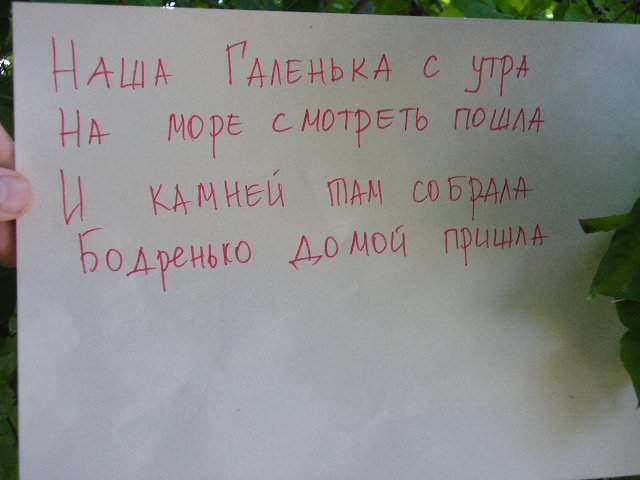 Наша Галенька с утра
На море смотреть пошла
И камней там собрала
Бодренько домой пришла